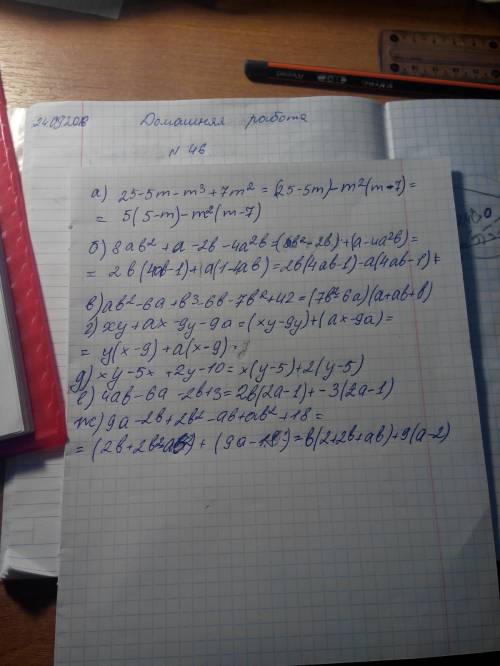 24.09.20
Домашняя работа
N 46
а) 25-5m-m³+7m² = (25-5m)-m²(m-7)=
= 5(5-m)-m²(m-7)
б) 8ab²+a-2b-4a²b=(8ab²-2b)+(a-4a²b)=
= 2b(4ab-1)+a(1-4ab)=2b(4ab-1)-a(4ab-1)+
в) ab²-6a+b³-6b-7b²+42=(7b²6a)(a+ab+b)
г) xy+ax-9y-9a=(xy-9y)+(ax-9a)=
= y(x-9)+a(x-9)
д) xy-5x+2y-10=x(y-5)+2(y-5)
е) 4ab-6a-2b+3=2b(2a-1)+-3(2a-1)
ж) 9a-2b+2b²-ab+ab²+18=
= (2b+2b²ab²)+(9a-18)=b(2+2b+ab)+9(a-2)